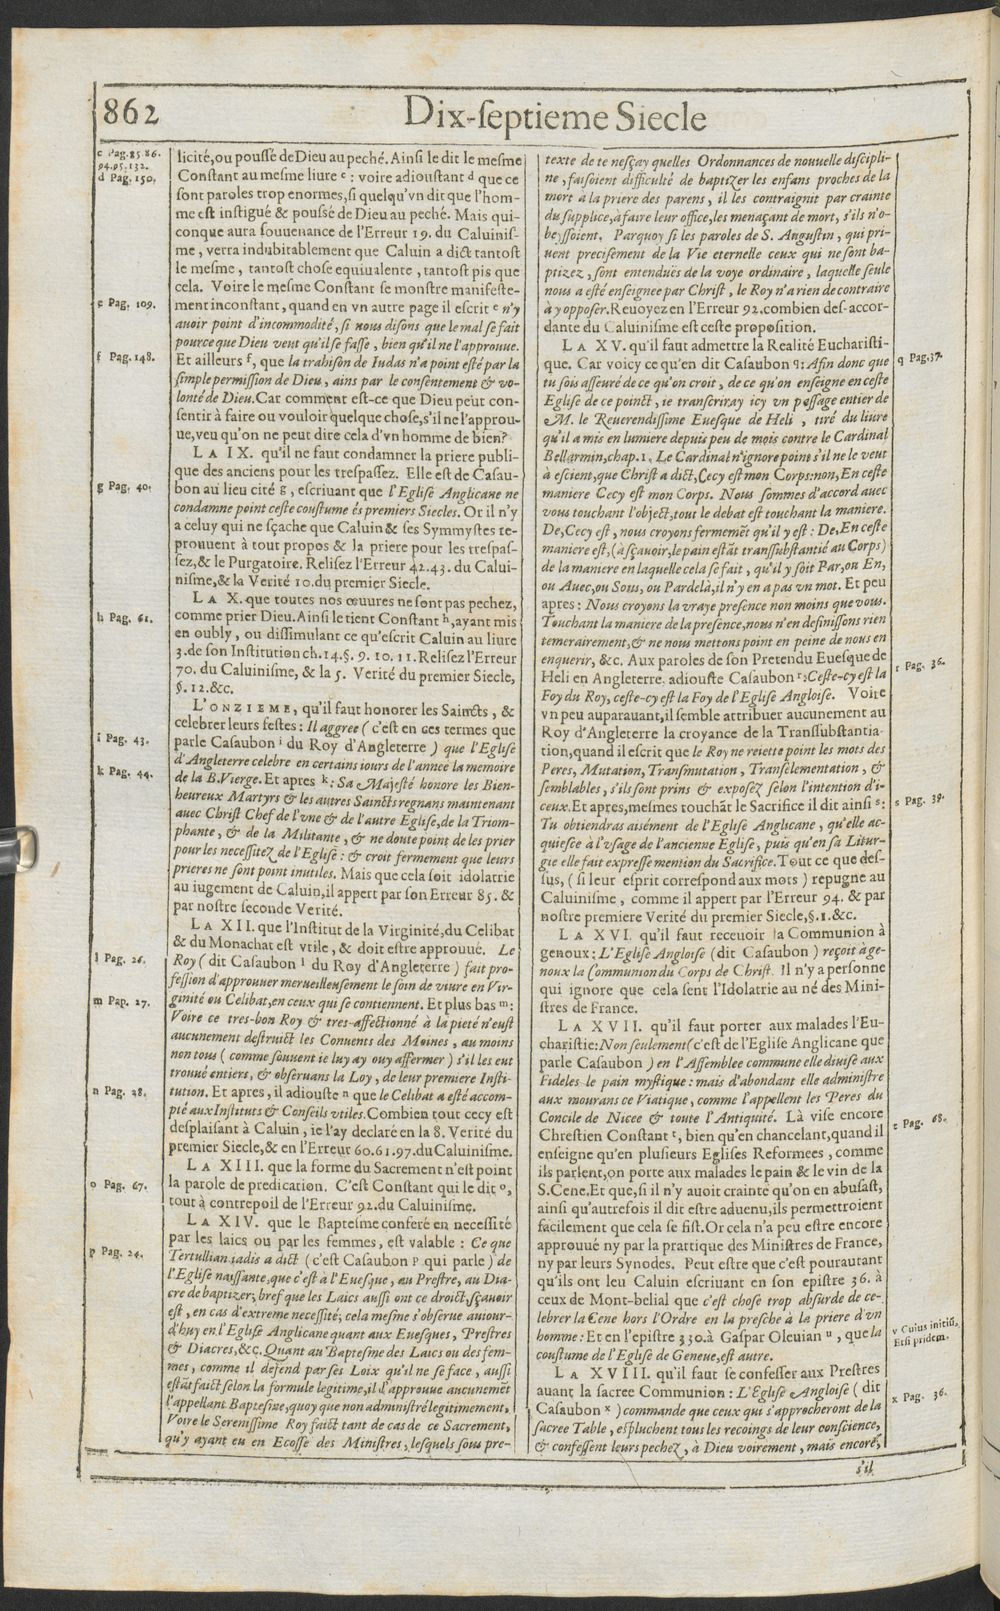 862
Dix-ſeptieme Siecle
c Pag. 85 86.
94.95.132.
d Pag. 150.
e Pag. 109.
f Pag. 148.
g Pag. 40.
h Pag. 61.
i Pag. 43.
k Pag. 44.
l Pag. 26.
m Pap. 27.
n Pag. 28.
o Pag. 67.
p Pag. 24.
licité, ou pouſſé de Dieu au peché. Ainſi le dit le meſme
Conſtant au meſme liure c: voire adiouſtant d que ce
ſont paroles trop enormes, ſi quelqu'vn dit que l'hom-
me eſt inſtigué & pouſſé de Dieu au peché. Mais qui-
conque aura ſouuenance de l'Erreur 19. du Caluiniſ-
me, verra indubitablement que Caluin a dict tantoſt
le meſme, tantoſt choſe equiualente, tantoſt pis que
cela. Voire le meſme Conſtant ſe monſtre manifeſte-
ment inconſtant, quand en vn autre page il eſcrit e n'y
auoir point d'incommodité, ſi nous diſons que le mal ſe fait
pource que Dieu veut qu'il ſe faſſe, bien qu'il ne l'approuue.
Et ailleurs f, que la trahiſon de Iudas n'a point eſté par la
ſimple permiſſion de Dieu, ains par le conſentement & vo-
lonté de Dieu. Car comment eſt-ce que Dieu peut con-
ſentir à faire ou vouloir quelque choſe, s'il ne l'approu-
ue, veu qu'on ne peut dire cela d'vn homme de bien?
LA IX. qu'il ne faut condamner la priere publi-
que des anciens pour les treſpaſſez. Elle eſt de Caſau-
bon au lieu cité g, eſcriuant que l'Egliſe Anglicane ne
condamne point ceſte couſtume és premiers Siecles. Or il n'y
a celuy qui ne ſçache que Caluin & ſes Symmyſtes re-
prouuent à tout propos & la priere pour les treſpaſ-
ſez, & le Purgatoire. Reliſez l'Erreur 42.43. du Calui-
niſme, & la Verité 10. du premier Siecle.
LA X. que toutes nos œuures ne ſont pas pechez,
comme prier Dieu. Ainſi le tient Conſtant h, ayant mis
en oubly, ou diſſimulant ce qu'eſcrit Caluin au liure
3. de ſon Inſtitution ch.14.§. 9. 10. 11. Reliſez l'Erreur
70. du Caluiniſme, & la 5. Verité du premier Siecle,
§. 12. &c.
L'ONZIEME, qu'il faut honorer les Saincts, &
celebrer leurs feſtes: Il aggree (c'eſt en ces termes que
parle Caſaubon i du Roy d'Angleterre) que l'Egliſe
d'Angleterre celebre en certains iours de l'annee la memoire
de la B. Vierge. Et apres k: Sa Majeſté honore les Bien-
heureux Martyrs & les autres Saincts regnans maintenant
auec Chriſt Chef de l'vne & de l'autre Egliſe, de la Triom-
phante, & de la Militante, & ne doute point de les prier
pour les neceſſitez de l'Egliſe: & croit fermement que leurs
prieres ne ſont point inutiles. Mais que cela ſoit idolatrie
au iugement de Caluin, il appert par ſon Erreur 85. &
par noſtre ſeconde Verité.
LA XII. que l'Inſtitut de la Virginité, du Celibat
& du Monachat eſt vtile, & doit eſtre approuué. Le
Roy (dit Caſaubon l du Roy d'Angleterre) fait pro-
feſſion d'approuuer merueilleuſement le ſoin de viure en Vir-
ginité ou Celibat, en ceux qui ſe contiennent. Et plus bas m:
Voire ce tres-bon Roy & tres-affectionné à la pieté n'euſt
aucunement deſtruict les Conuents des Moines, au moins
non tous (comme ſouuent ie luy ay ouy affermer) s'il les eut
trouué entiers, & obſeruans la Loy, de leur premiere Inſti-
tution. Et apres, il adiouſte n que le Celibat a eſté accom-
pté aux Inſtituts & Conſeils vtiles. Combien tout cecy eſt
deſplaiſant à Caluin, ie l'ay declaré en la 8. Verité du
premier Siecle, & en l'Erreur 60.61.97. du Caluiniſme.
LA XIII. que la forme du Sacrement n'eſt point
la parole de predication. C'eſt Conſtant qui le dit o,
tout à contrepoil de l'Erreur 92. du Caluiniſme.
LA XIV. que le Bapteſme conferé en neceſſité
par les laics ou par les femmes, eſt valable: Ce que
Tertullian iadis a dict (c'eſt Caſaubon p qui parle) de
l'Egliſe naiſſante, que c'eſt à l'Eueſque, au Preſtre, au Dia-
cre de baptizer; bref que les Laics auſſi ont ce droict, ſçauoir
eſt, en cas d'extreme neceſſité; cela meſme s'obſerue auiour-
d'huy en l'Egliſe Anglicane quant aux Eueſques, Preſtres
& Diacres, &c. Quant au Bapteſme des Laics ou des fem-
mes, comme il defend par ſes Loix qu'il ne ſe face, auſſi
eſtãt faict ſelon la formule legitime, il l'approuue aucunemẽt
l'appellant Bapteſme, quoy que non adminiſtré legitimement,
Voire le Sereniſſime Roy faict tant de cas de ce Sacrement,
qu'y ayant eu en Ecoſſe des Miniſtres, leſquels ſous pre-
texte de ie neſçay quelles Ordonnances de nouuelle diſcipli-
ne, faiſoient difficulté de baptizer les enfans proches de la
mort a la priere des parens, il les contraignit par crainte
du ſupplice, à faire leur office, les menaçant de mort, s'ils n'o-
beyſſoient. Parquoy ſi les paroles de S. Auguſtin, qui pri-
uent preciſement de la Vie eternelle ceux qui ne ſont ba-
ptizez, ſont entenduës de la voye ordinaire, laquelle ſeule
nous a eſté enſeignee par Chriſt, le Roy n'a rien de contraire
à y oppoſer. Reuoyez en l'Erreur 92. combien deſ-accor-
dante du Caluiniſme eſt ceſte propoſition.
LA XV. qu'il faut admettre la Realité Euchariſti-
que. Car voicy ce qu'en dit Caſaubon q: Afin donc que
tu ſois aſſeuré de ce qu'on croit, de ce qu'on enſeigne en ceſte
Egliſe de ce poinct, ie tranſcriray icy vn paſſage entier de
M. le Reuerendiſſime Eueſque de Heli, tiré du liure
qu'il a mis en lumiere depuis peu de mois contre le Cardinal
Bellarmin, chap. 1. Le Cardinal n'ignore point s'il ne le veut
à eſcient, que Chriſt a dict, Cecy eſt mon Corps: non, En ceſte
maniere Cecy eſt mon Corps. Nous ſommes d'accord auec
vous touchant l'object, tout le debat eſt touchant la maniere.
De, Cecy eſt, nous croyons fermemẽt qu'il y eſt: De, En ceſte
maniere eſt, (à ſçauoir, le pain eſtãt tranſſubſtantié au Corps)
de la maniere en laquelle cela ſe fait, qu'il y ſoit Par, ou En,
ou Auec, ou Sous, ou Pardelà, il n'y en a pas vn mot. Et peu
apres: Nous croyons la vraye preſence non moins que vous.
Touchant la maniere de la preſence, nous n'en definiſſons rien
temerairement, & ne nous mettons point en peine de nous en
enquerir, &c. Aux paroles de ſon Pretendu Eueſque de
Heli en Angleterre, adiouſte Caſaubon r: Ceſte-cy eſt la
Foy du Roy, ceſte-cy eſt la Foy de l'Egliſe Angloiſe. Voire
vn peu auparauant, il ſemble attribuer aucunement au
Roy d'Angleterre la croyance de la Tranſſubſtantia-
tion, quand il eſcrit que le Roy ne reiette point les mots des
Peres, Mutation, Tranſmutation, Tranſelementation, &
ſemblables, s'ils ſont prins & expoſez ſelon l'intention d'i-
ceux. Et apres, meſmes touchãt le Sacrifice il dit ainſi s:
Tu obtiendras aisément de l'Egliſe Anglicane, qu'elle ac-
quieſce à l'vſage de l'ancienne Egliſe, puis qu'en ſa Litur-
gie elle fait expreſſe mention du Sacrifice. Tout ce que deſ-
ſus, (ſi leur eſprit correſpond aux mots) repugne au
Caluiniſme, comme il appert par l'Erreur 94. & par
noſtre premiere Verité du premier Siecle, §. 1. &c.
LA XVI. qu'il faut receuoir la Communion à
genoux: L'Egliſe Angloiſe (dit Caſaubon) reçoit à ge-
noux la Communion du Corps de Chriſt. Il n'y a perſonne
qui ignore que cela ſent l'Idolatrie au né des Mini-
ſtres de France.
LA XVII. qu'il faut porter aux malades l'Eu-
chariſtie: Non ſeulement (c'eſt de l'Egliſe Anglicane que
parle Caſaubon) en l'Aſſemblee commune elle diuiſe aux
Fideles le pain myſtique: mais d'abondant elle adminiſtre
aux mourans ce Viatique, comme l'appellent les Peres du
Concile de Nicee & toute l'Antiquité. Là viſe encore
Chreſtien Conſtant t, bien qu'en chancelant, quand il
enſeigne qu'en pluſieurs Egliſes Reformees, comme
ils parlent, on porte aux malades le pain & le vin de la
S. Cene. Et que, ſi il n'y auoit crainte qu'on en abuſaſt,
ainſi qu'autrefois il dit eſtre aduenu, ils permettroient
facilement que cela ſe fiſt. Or cela n'a peu eſtre encore
approuué ny par la prattique des Miniſtres de France,
ny par leurs Synodes. Peut eſtre que c'eſt pourautant
qu'ils ont leu Caluin eſcriuant en ſon epiſtre 36. à
ceux de Mont-belial que c'eſt choſe trop abſurde de ce-
lebrer la Cene hors l'Ordre en la preſche à la priere d'vn
homme: Et en l'epiſtre 330. à Gaſpar Oleuian u, que la
couſtume de l'Egliſe de Geneue, eſt autre.
LA XVIII. qu'il faut ſe confeſſer aux Preſtres
auant la ſacree Communion: L'Egliſe Angloiſe (dit
Caſaubon x) commande que ceux qui s'approcheront de la
ſacree Table, eſpluchent tous les recoings de leur conſcience,
& confeſſent leurs pechez, à Dieu voirement, mais encore,
s'il
q Pag. 37.
r Pag. 36.
s Pag. 39.
t Pag. 68.
v Cuius initiũ,
Etſi pridem.
x Pag. 36.